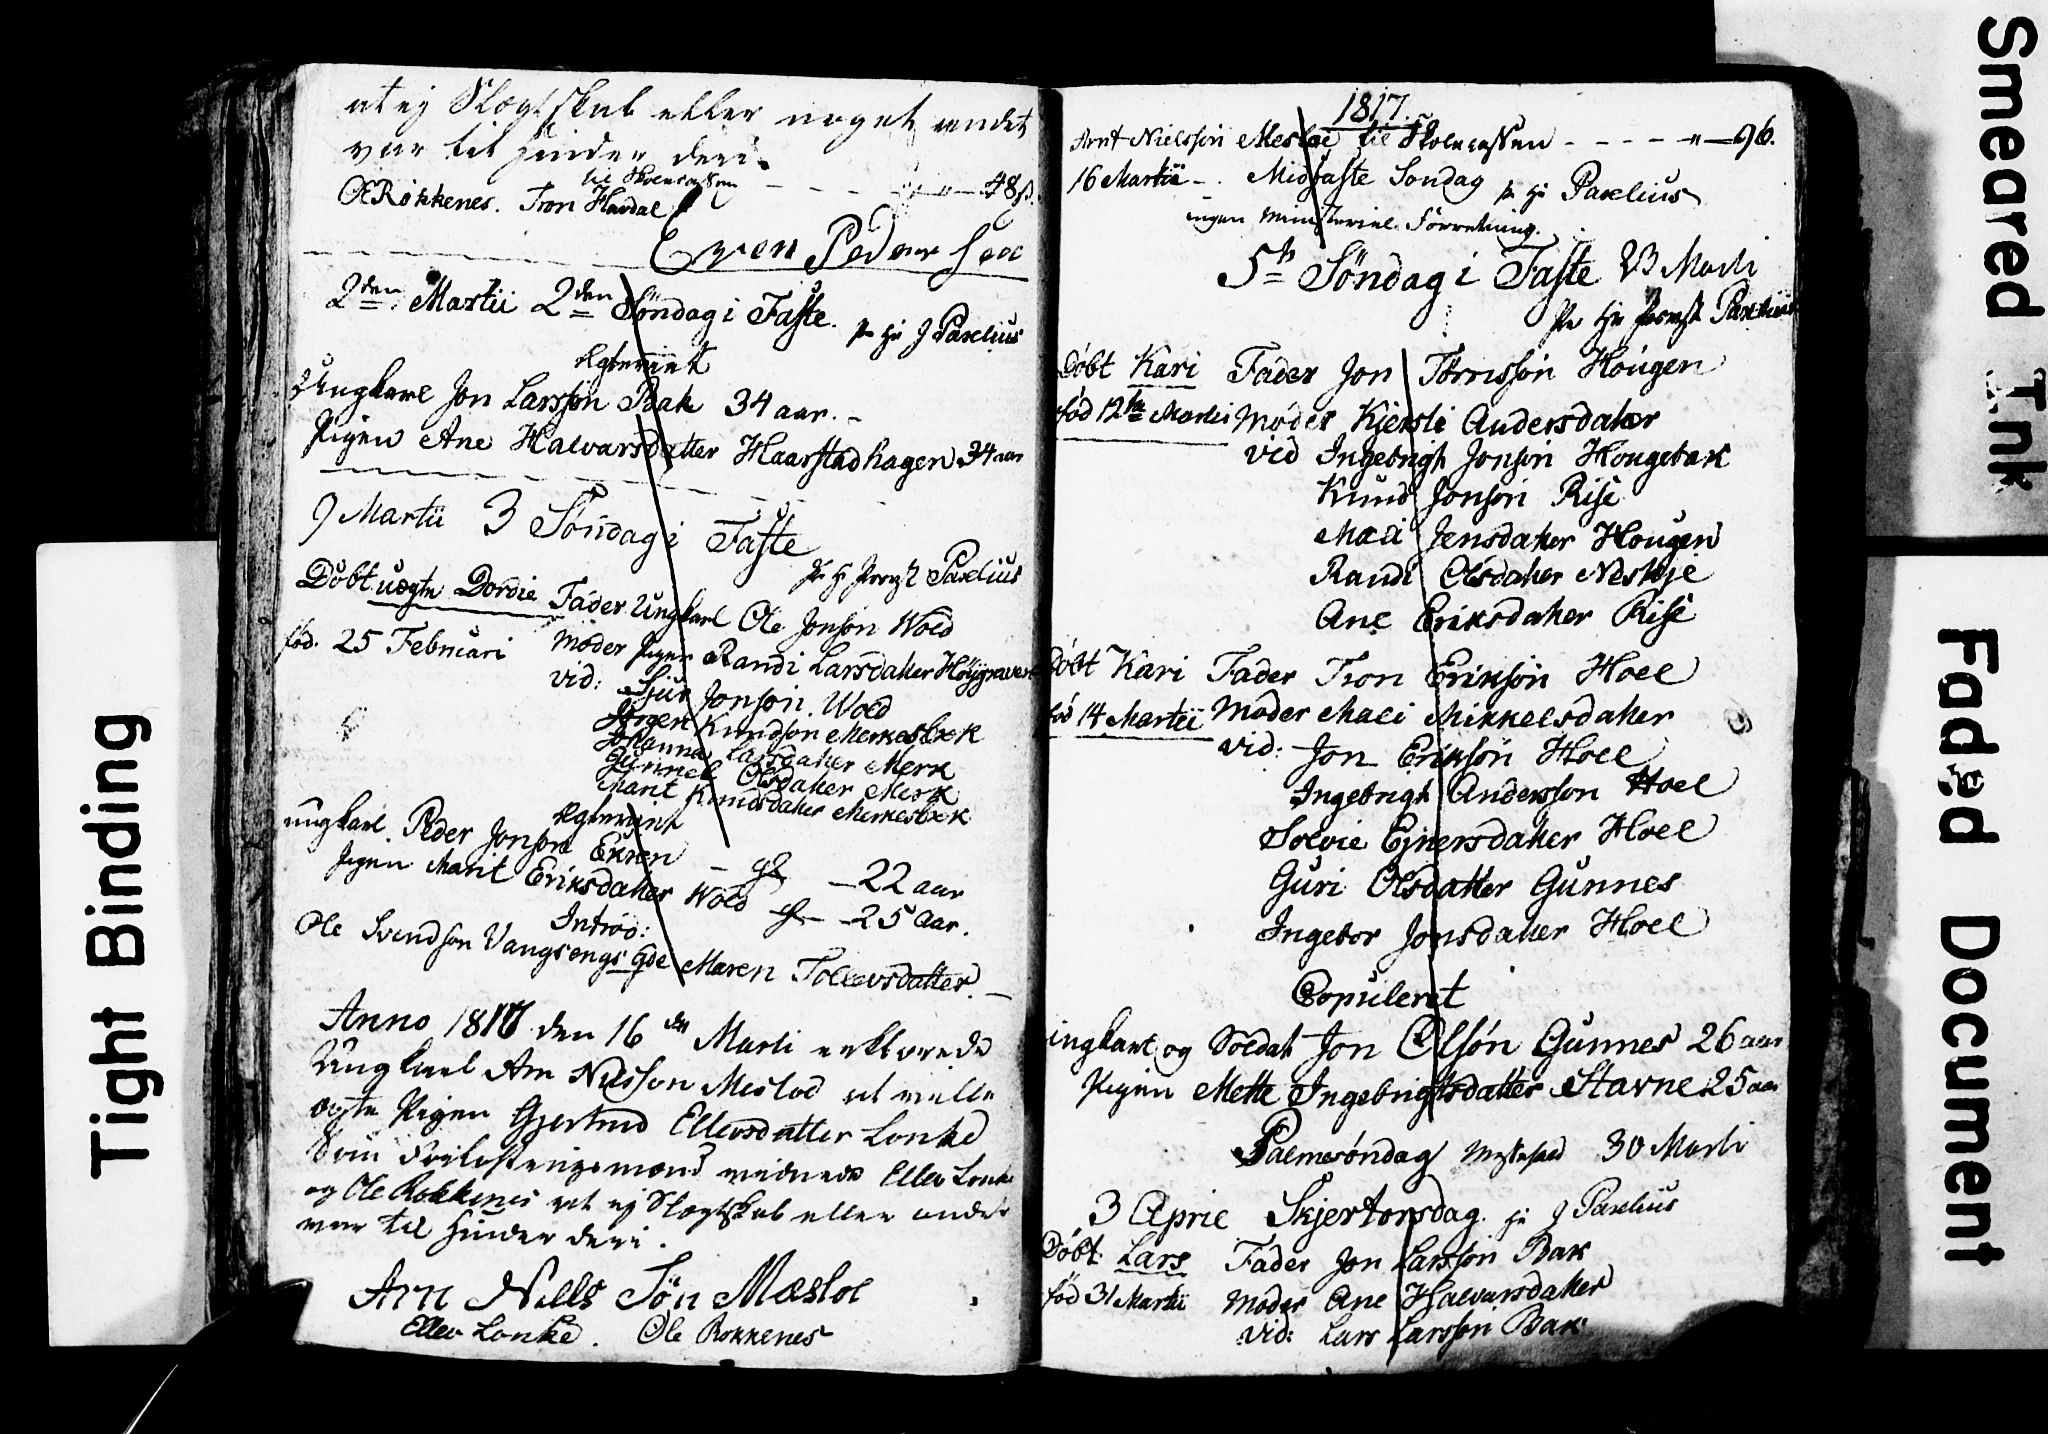 at ej Slægtskab eller noget andet
var til Hinder deri.
til Skolecassen - - - - 48 s.
OERökkenes. Tron Havdal
Even Peder Søn
2den Martii 2den Söndag i Faste. pr Hr J Parelius
Egteviet
Ungkarl Jon Larssøn Bak 34 aar. -
Pigen Ane Halvarsdatter Haarstadhagen 34 aar
9 Martii 3 Söndag i Faste
pr H Provst Parelius
Döbt uægte Dordie Fader Ungkarl Ole Jonson Wold
fød. 25 Februari Moder Pigen Randi Larsdatter
vid: Sjur Jonson Wold
Knudson Merkesbæk
Johanna Larsdatter Merk
Gunnel Olsdatter Merk
Marit Knudsdatter Merkesbæk
Egteviet
ungkarl Peder Jonson Eknen - - 22 aar
Pigen Marit Eriksdatter Wold - 25 aar.
Introd:
Ole Svendson Vangsengs Gde Maren Tollevsdatter. -
Anno 1817 den 16 den Marti erklærede
Ungkarl Arn Nilsson Meslod at ville
ægte Pigen Gjertrud Ellevsdatter Lonke
Som Forlovningsmænd vidnede Ellev Lonke
og Ole Rokkenes at ej Slægtskab eller andet
var til Hinder deri.
Arn Nills Sön Mæsloe
Ellev Lonke. Ole Rokkenes
1817.
Arnt Nielssön Mesloe til Skolecassen - - - - " - 96.
16 Martii - . Midfaste Sondag pr Hr Parelius
ingen Ministeriel Forretning.
5te Söndag i Faste 23 Marti
pr Hr Provst Parelius
Döbt Kari Fader Jon Hougen
fød 12te Martii Moder Kjersti Andersdatter
vid Ingebrigt Jonsön Hougebak
Knud Jonsön Rise
Mali Jensdatter Hougen
Randi Olsdatter
Ane Eriksdatter Rise
Döbt Kari Fader Tron Eriksön Hoel
fød 14 Martii Moder Mali Mikkelsdatter
vid: Jon Eriksön Hoel
Ingebrigt Andersson Hoel
Solvie Ejnersdatter Hoel
Guri Olsdatter Gunnes
Ingebor Jonsdatter Hoel
Copuleret
ungkarl og Soldat Jon Olsön Gunnes 26 aar
Pigen Mette Ingebrigtsdatter Stavne 25 aar
Palmesöndag Messefald 30 Marti
3 April Skjertorsdag. Hr J Parelius
Döbt Lars Fader Jon Larssön Bak
fød 31 Martii Moder Ane Halvarsdatter
vid: Lars Larssön Bak
Tight Binding
Smeared Ink
Faded Document